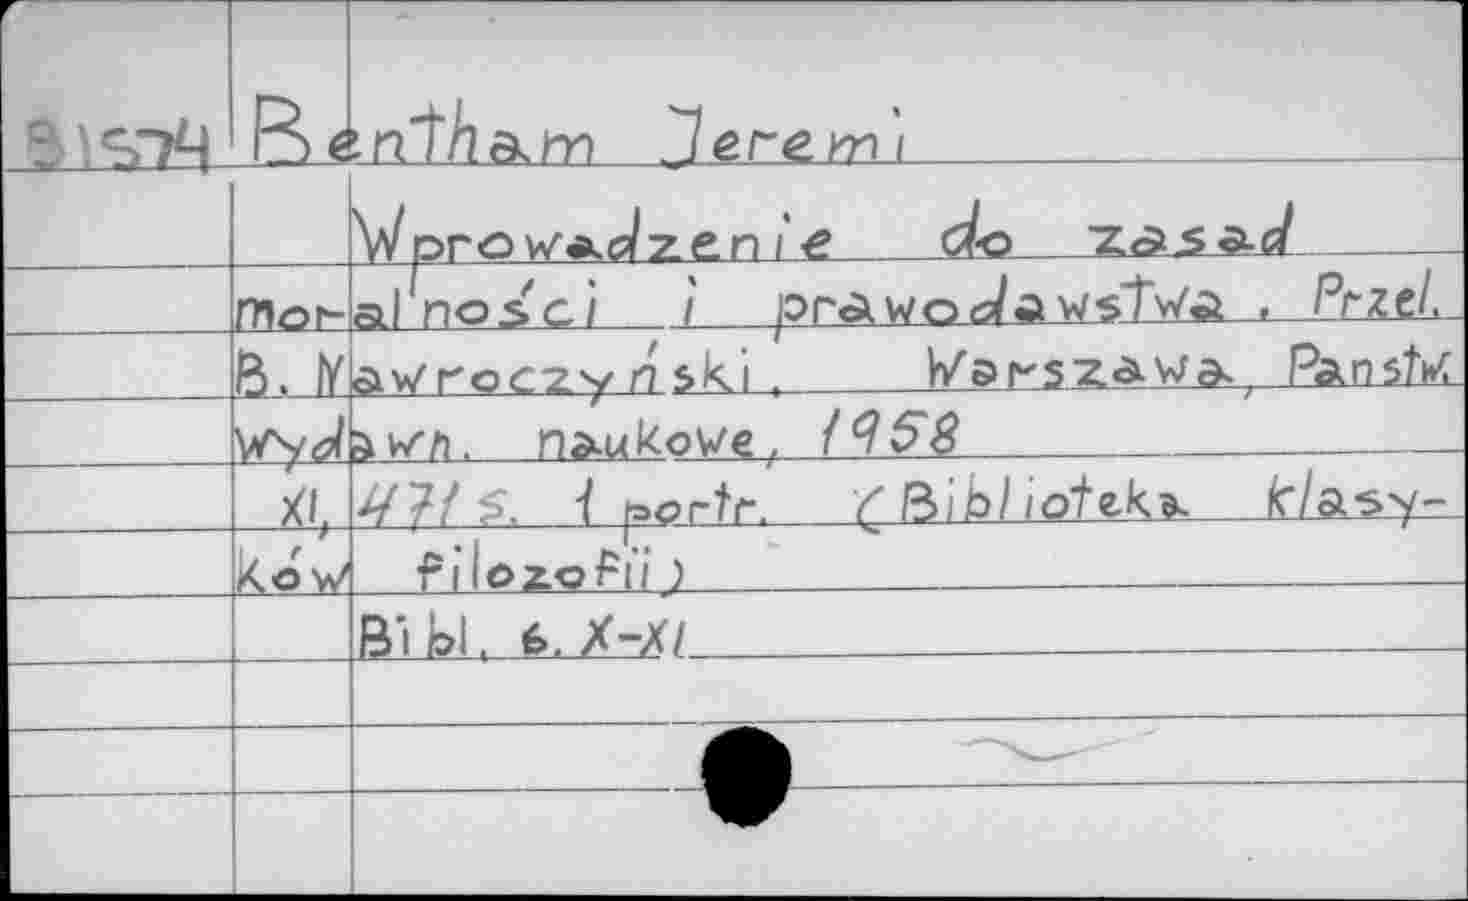 B1574 Bentham Jeremi
Wprowadzenie do zasad
moralności i prawodawstwa. Przeł.
B. Nawroczyński. Warszawa, Państw.
Wydawn. naukowe, 1958
XI, 471 s. 1 portr. (Biblioteka klasy-
ków filozofii)
Bibl. s. X-XI